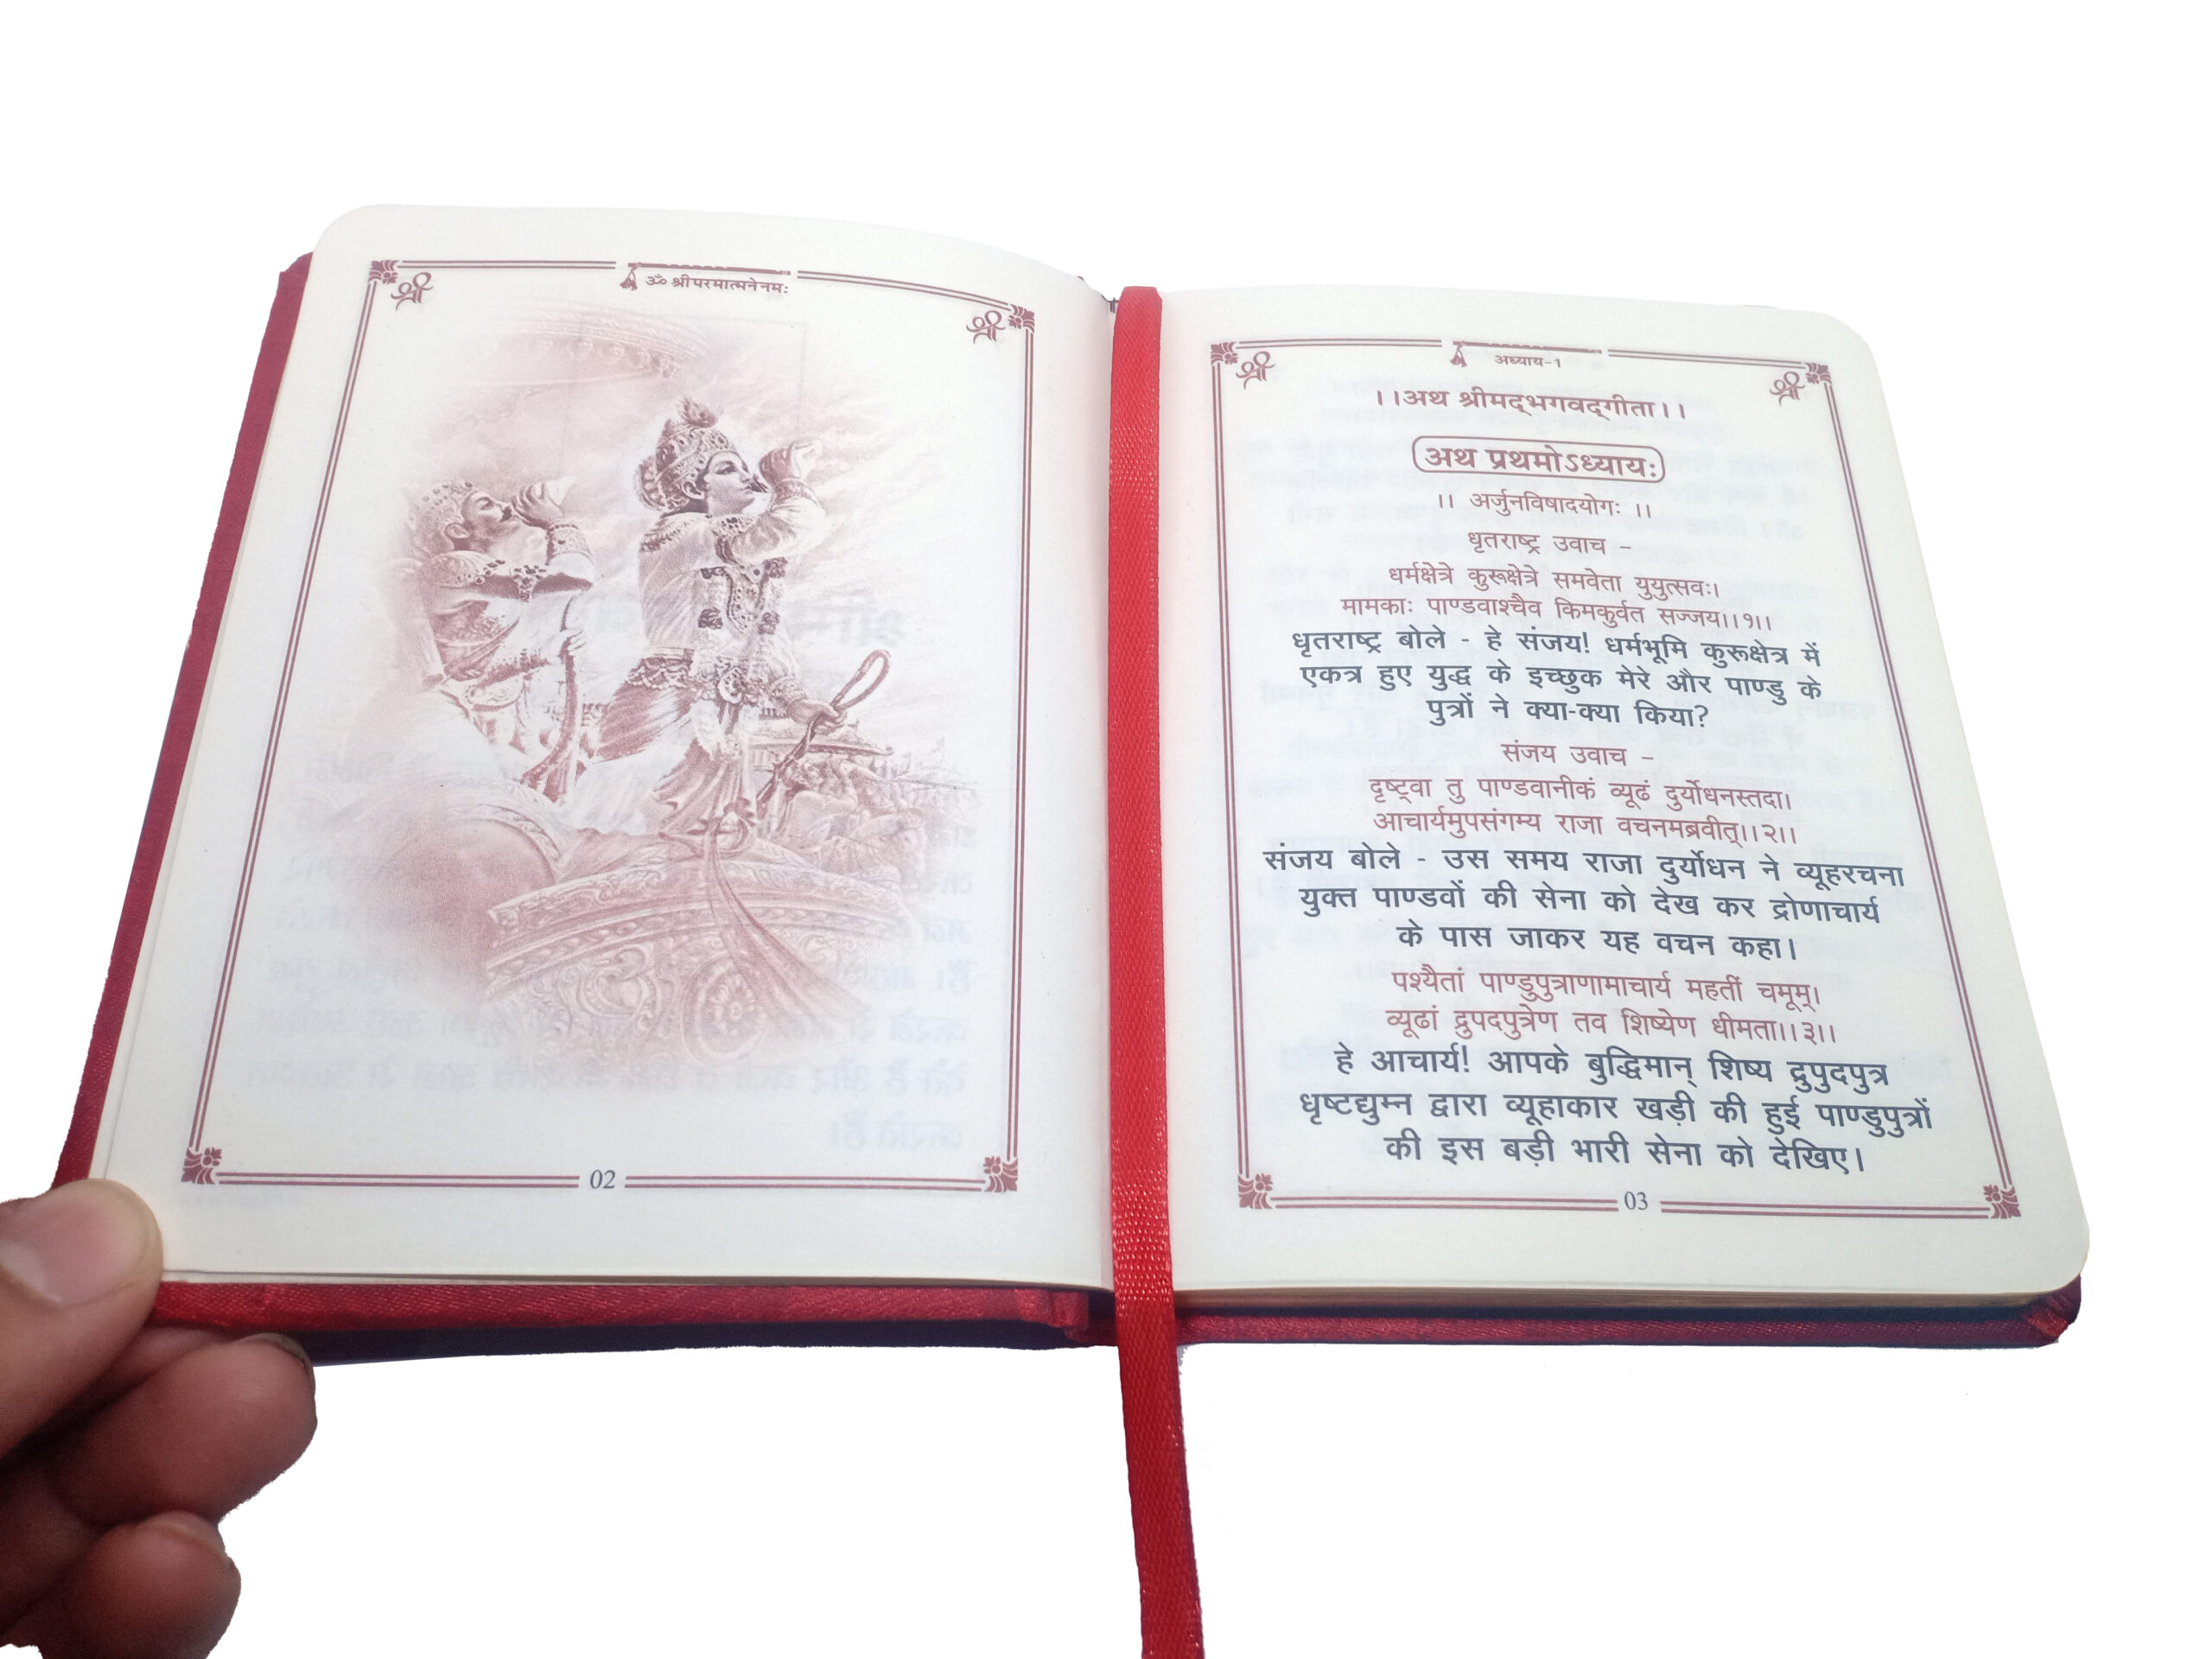 ॐ श्रीपरमात्मने नमः
श्री
श्री
02
अध्याय-1
श्री
श्री
।।अथ श्रीमद्भगवद्गीता।।
अथ प्रथमोऽध्यायः
।। अर्जुनविषादयोगः ।।
धृतराष्ट्र उवाच –
धर्मक्षेत्रे कुरूक्षेत्रे समवेता युयुत्सवः।
मामकाः पाण्डवाश्चैव किमकुर्वत सज्जय।।१।।
धृतराष्ट्र बोले - हे संजय! धर्मभूमि कुरूक्षेत्र में
एकत्र हुए युद्ध के इच्छुक मेरे और पाण्डु के
पुत्रों ने क्या-क्या किया?
संजय उवाच –
दृष्ट्वा तु पाण्डवानीकं व्यूढं दुर्योधनस्तदा।
आचार्यमुपसंगम्य राजा वचनमब्रवीत्।।२।।
संजय बोले - उस समय राजा दुर्योधन ने व्यूहरचना
युक्त पाण्डवों की सेना को देख कर द्रोणाचार्य
के पास जाकर यह वचन कहा।
पश्यैतां पाण्डुपुत्राणामाचार्य महतीं चमूम्।
व्यूढां द्रुपदपुत्रेण तव शिष्येण धीमता।।३।।
हे आचार्य! आपके बुद्धिमान् शिष्य द्रुपुदपुत्र
धृष्टद्युम्न द्वारा व्यूहाकार खड़ी की हुई पाण्डुपुत्रों
की इस बड़ी भारी सेना को देखिए।
03